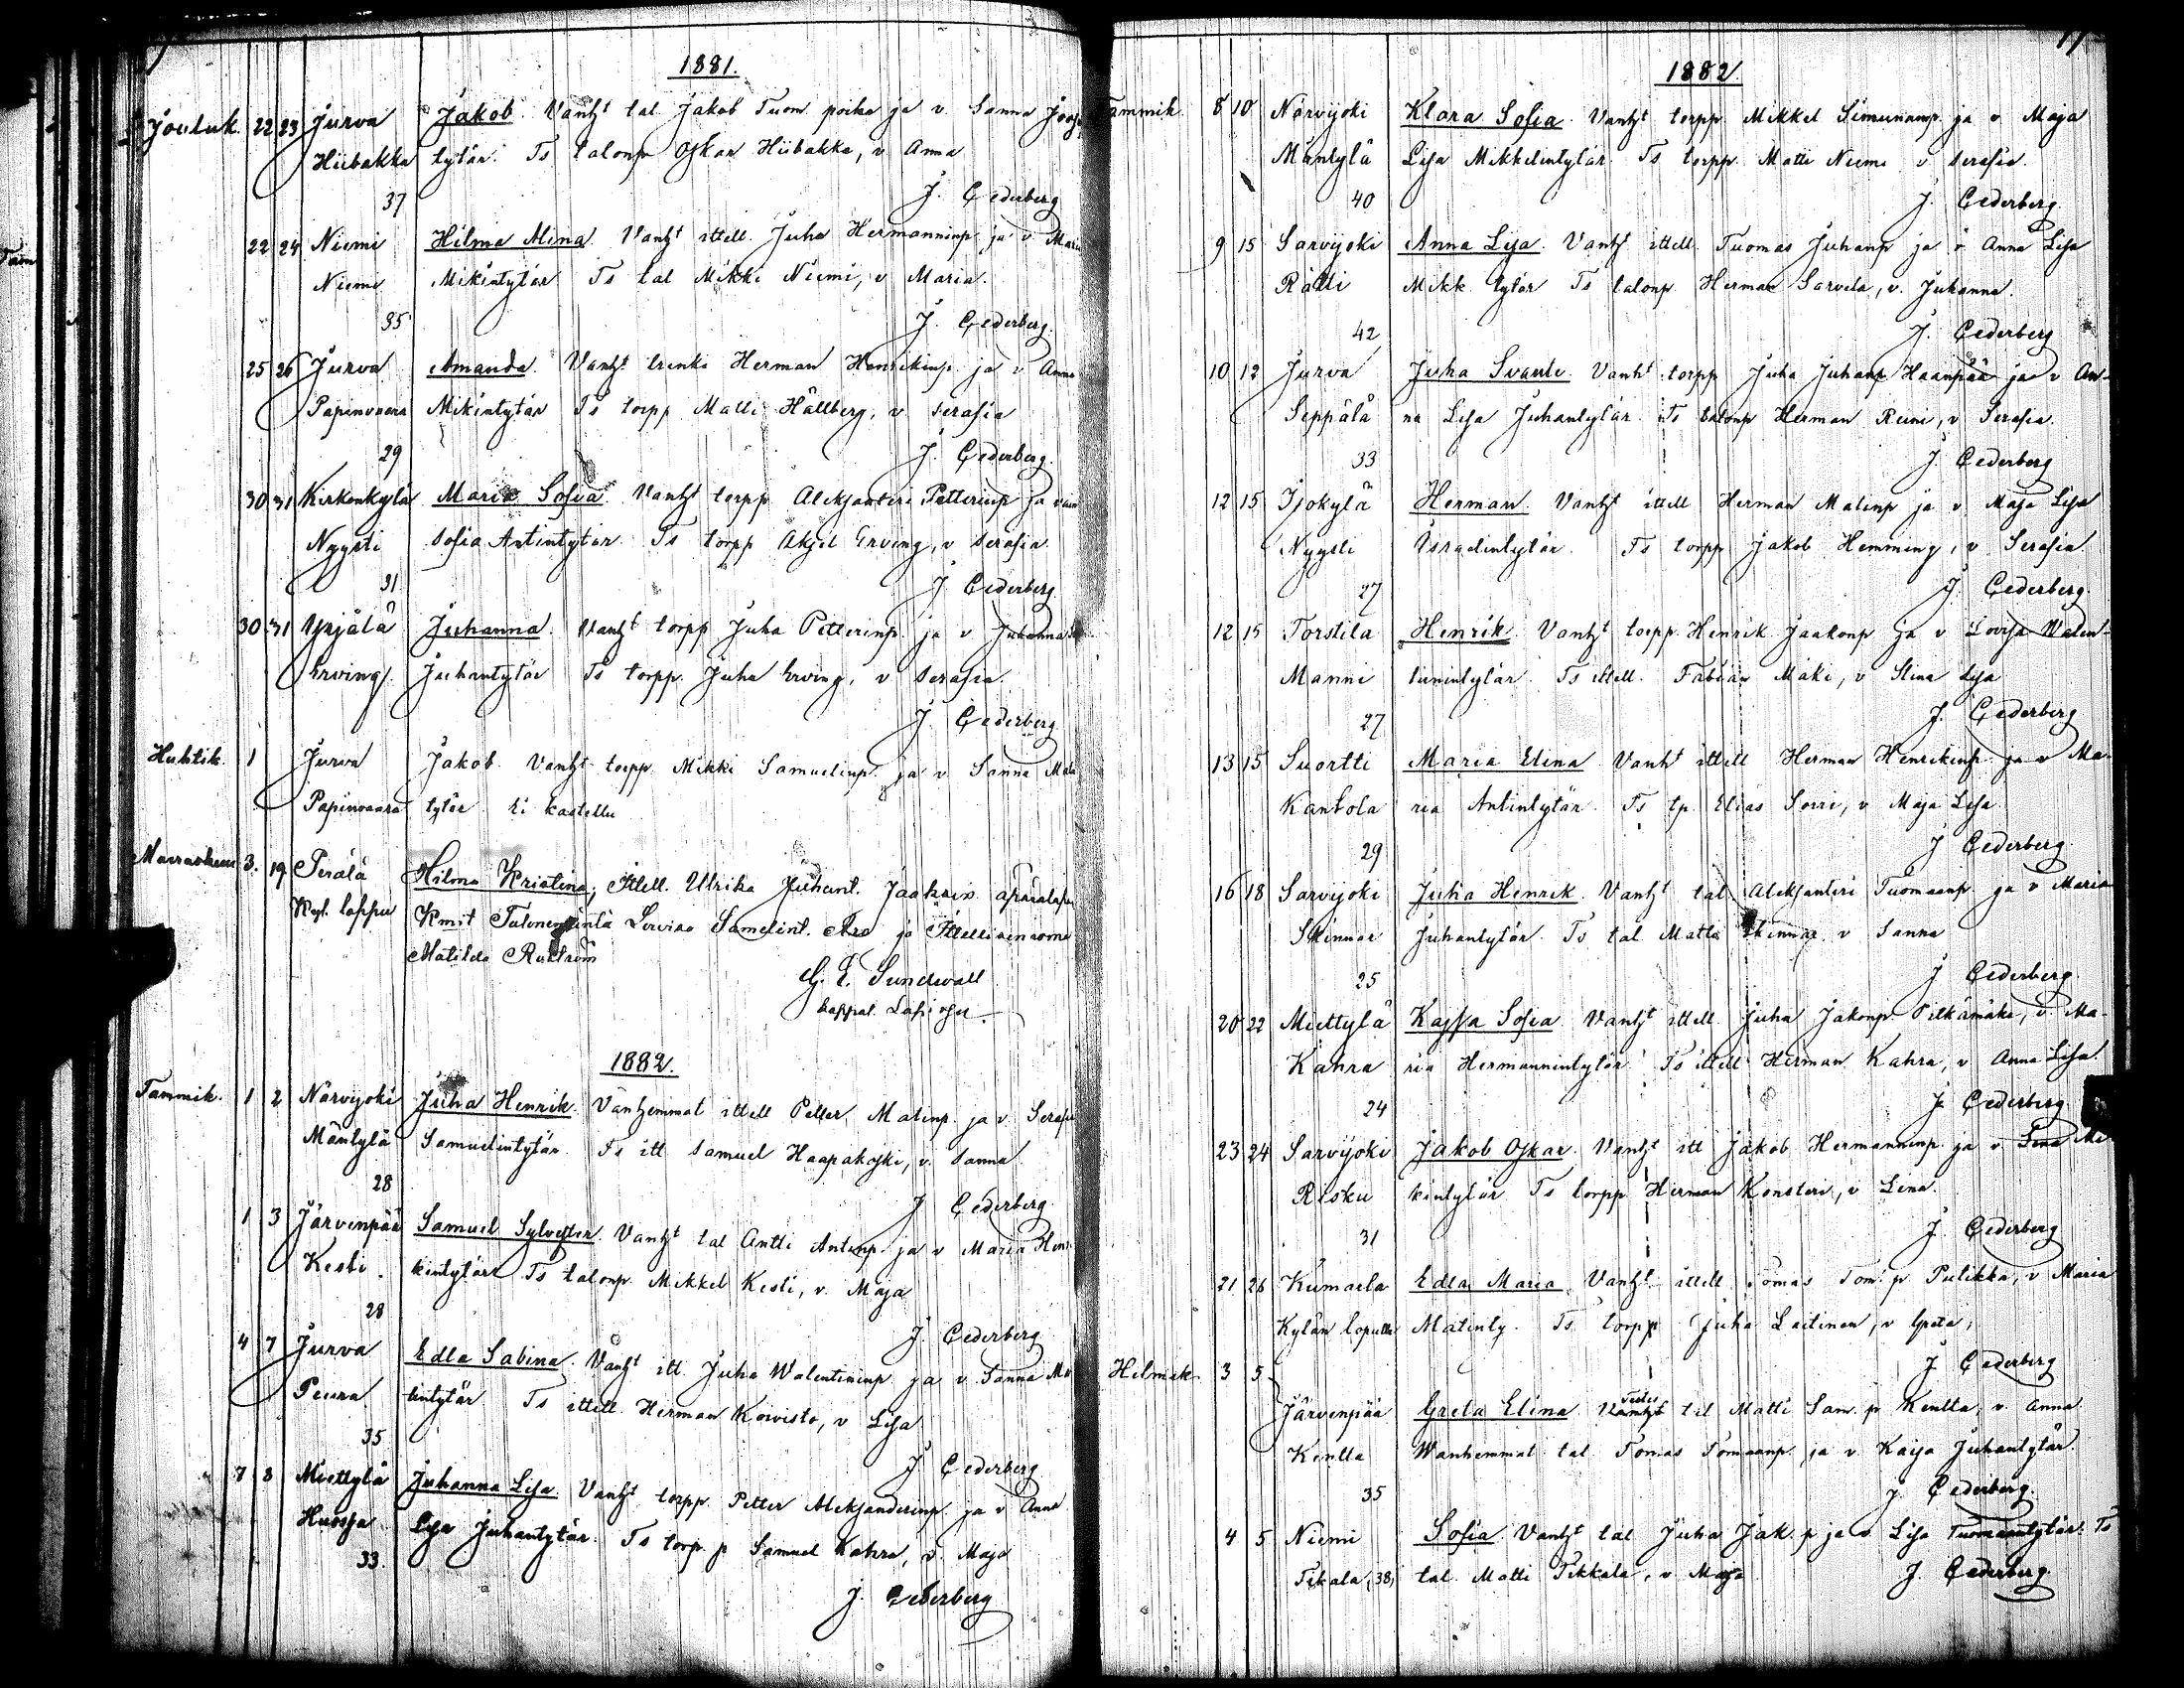 1881.
Jouluk. 22 23 Jurva Jakob. Vanht tal. Jakob Tuom. poika ja v. Sanna Joos
Hiibakka tytär. Ts talonp Oskar Hiibakka, v. Anna
37 J. Cederberg
22 24 Niemi Hilma Mina. Vanht ittell. Juha Hermanninp. ja v. Maria
Niemi Mikintytär Ts tal Mikki Niemi, v. Maria.
35 J. Cederberg.
25 26 Jurva Amanda. Vanht trenki Herman Henrikinp. ja v Anna
Papinvaara Mikintytär Ts torpp Matti Hällberg, v. Serafia
29 J. Cederberg.
30 31 Kirkonkylä Maria Sofia. Vanht torpp Aleksanteri Petterinp ja vaim
Nyysti Sofia Antintytär. Ts torpp Aksel Erving, v Serafia
31 J Cederberg
30 31 Yrjälä Juhanna. Vanht torpp Juha Petterinp. ja v Juhanna
Erving. Juhantytär Ts torpp. Juha Erving, v Serafia.
J Cederberg
Huhtik. 1 Jurva Jakob. Vanht torpp Mikki Samuelinp. ja v. Sanna Mati
Papinvaara tytär Ei kastettu
Marraskuu 3. 19. Perälä Hilma Kristina, Ittell. Ulrika Juhant. Jaakain äpäralapsi
Kyl. loppu Kmit Talonemäntä Loviisa Samelint. Aro ja Ittellisen vaimo
Matilda
G. E. Sundwall
kappal.
1882.
Tammik. 1 2 Närvijoki Juha Henrik. Vanhemmat ittell Petter Matinp. ja v. Serafia
Mäntylä Samuelintytär Ts itt Samuel Haapakoski, v. Sanna
28 J Cederberg.
1 3 Järvenpää Samuel Sylvester. Vanht tal Antti Antinp. ja v Maria Hen
Kesti. kintytär Ts talonp. Mikkel Kesti, v. Maja
28 J. Cederberg
4 7 Jurva Edla Sabina. Vanht itt. Juha Walentininp. ja v. Sanna Ma
Peura tintytär Ts ittell. Herman Koivisto, v Lisa
35 J Cederberg
7 8 Miettylä Juhanna Lisa. Vanht torpp. Petter Aleksanderinp. ja v Anna
Huossa Lisa Juhantytär. Ts torp. p Samuel Kahra, v. Maja
33. J. Cederberg
1882.
Tammik. 8 10 Närvijoki Klara Sofia. Vanht torpp. Mikkel Simunanp. ja v Maja
Mäntylä Lisa Mikkelintytär. Ts torpp. Matti Niemi v Serafia.
40 J. Cederberg.
9 15 Sarvijoki Anna Lisa. Vanht ittell. Tuomas Juhanp ja v Anna Lisa
Rätti Mikk. tytär Ts talonp. Herman Sarvela, v. Juhanna.
42 J. Cederberg
10 12 Jurva Juha Svante. Vanht torpp Juha Juhanp Haanpää ja v An-
Seppälä na Lisa Juhantytär. Ts talonp Herman Reini, v Serafia.
33 J Cederberg
12 15 Ijokylä Herman. Vanht ittell Herman Matinp ja v. Maja Lisa
Nyysti Israelintytär. Ts torpp Jakob Hemming, v Serafia
27 J. Cederberg.
12 15 Torstila Henrik. Vanht torpp. Henrik Jaakonp ja v Lovisa Walen-
Manni tinintytär. Ts ittell. Fabian Mäki, v Stina Lisa
27 J. Cederberg
13 15 Suortti Maria Elina. Vanht ittell Herman Henrikinp. ja v Ma-
Kantola ria Antintytär. Ts tp. Elias Sorri, v Maja Lisa
29 J Cederberg.
16 18 Sarvijoki Juha Henrik. Vanht tal Aleksanteri Tuomaanp. ja v Maria
Skinnar Juhantytär. Ts tal Matti Skinnar. v Sanna
25 J Cederberg.
20 22 Miettylä Kajsa Sofia. Vanht ittell Juha Jakonp. Pelkämäki, v. Ma-
Kahra ria Hermannintytär. Ts ittell Herman Kahra, v Anna Lisa.
24 J. Cederberg
23 24 Sarvijoki Jakob Oskar. Vanht itt Jakob Hermanninp. ja v Lena Mi
Risku kintytär Ts torpp Herman Konsteri, v Lena.
31 J Cederberg
21 26 Kiimaela Edla Maria. Vanht ittell. Tomas Tom. p Pulikka, v Maria
Kylän lopulla Matinty. Ts torpp Juha Laitinen, v Greta,
J Cederberg
Helmik. 3 5 Järvenpää Greta Elina. Vanht tal Matti Sam. p Kentta, v. Anna
Kentta Wanhemmat tal Tomas Tomaanp. ja v. Kaija Juhantytär.
35 J. Cederberg.
4 5 Niemi Sofia. Vanht tal Juha Jak. p ja v. Lisa Tuomaantytär. Ts
Tikala (38) tal. Matti Tikkala, v Maja J. Cederberg.